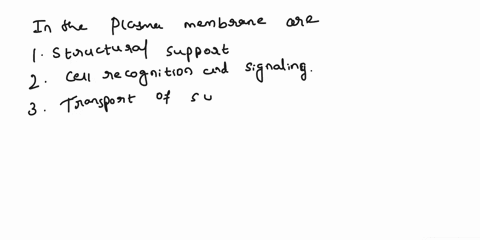 In the Plasma membrane are
1. Structural support
2. Cell recognition and signaling.
3. Transport of su